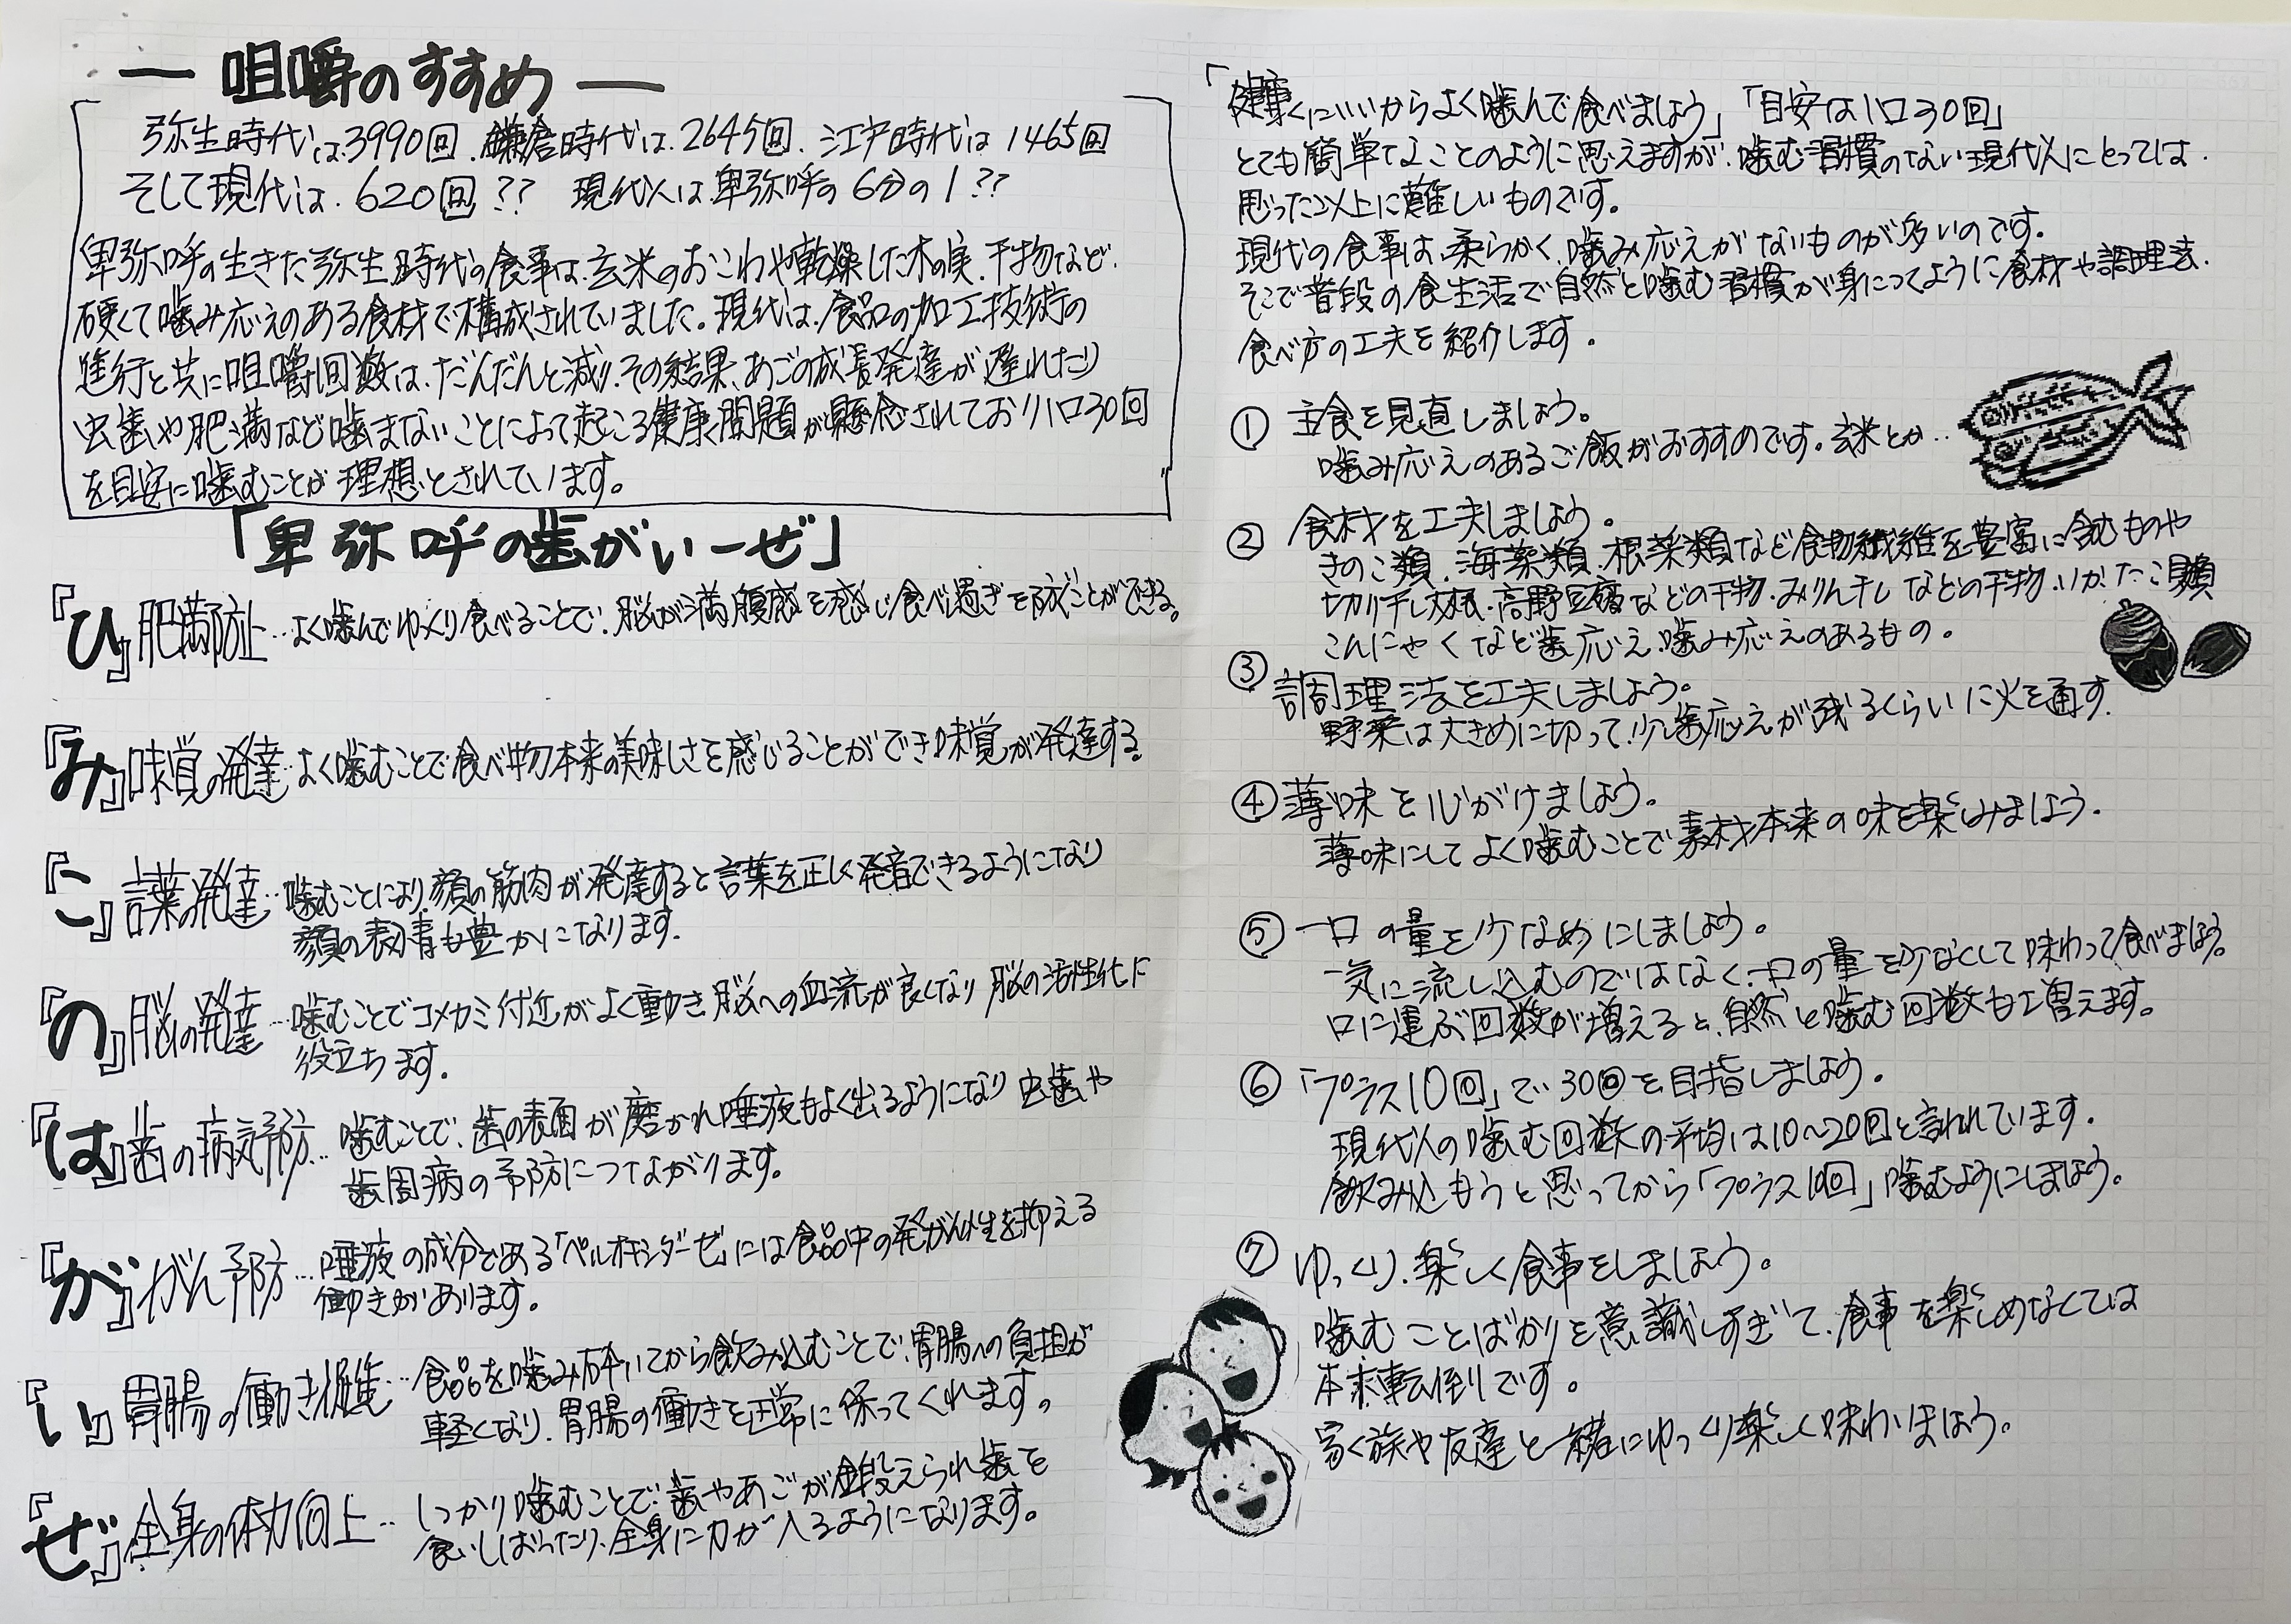 ― 咀嚼のすすめ ―
弥生時代は、3990回、鎌倉時代は、2645回、江戸時代は 1465回
そして現代は、620回?? 現代人は卑弥呼の6分の1??
卑弥呼の生きた弥生時代の食事は、玄米のおこわや乾燥した木の実、干物など、
硬くて噛み応えのある食材で構成されていました。現代は、食品の加工技術の
進行と共に咀嚼回数は、だんだんと減り、その結果、あごの成長発達が遅れたり
虫歯や肥満など噛まないことによって起こる健康問題が懸念されており1口30回
を目安に噛むことが理想とされています。
「卑弥呼の歯がいーぜ」
『ひ』肥満防止…よく噛んでゆっくり食べることで、脳が満腹感を感じ食べ過ぎを防ぐことができる。
『み』味覚の発達…よく噛むことで食べ物本来の美味しさを感じることができ味覚が発達する。
『こ』言葉の発達…噛むことにより、顔の筋肉が発達すると言葉を正しく発音できるようになり
顔の表情も豊かになります。
『の』脳の発達…噛むことでコメカミ付近がよく動き脳への血流が良くなり脳の活性化に
役立ちます。
『は』歯の病気予防…噛むことで、歯の表面が磨かれ唾液もよく出るようになり虫歯や
歯周病の予防につながります。
『が』がん予防…唾液の成分である「ペルオキシダーゼ」には食品中の発がん性を抑える
働きがあります。
『い』胃腸の働き促進…食品を噛み砕いてから飲み込むことで、胃腸への負担が
軽くなり、胃腸の働きを正常に保ってくれます。
『ぜ』全身の体力向上…しっかり噛むことで、歯やあごが鍛えられ歯を
食いしばったり、全身に力が入るようになります。
「健康にいいからよく噛んで食べましょう」「目安は1口30回」
とても簡単なことのように思えますが、噛む習慣のない現代人にとっては、
思った以上に難しいものです。
現代の食事は、柔らかく、噛み応えがないものが多いのです。
そこで普段の食生活で自然と噛む習慣が身につくように食材や調理法、
食べ方の工夫を紹介します。
① 主食を見直しましょう。
噛み応えのあるご飯がおすすめです。玄米とか…
② 食材を工夫しましょう。
きのこ類、海藻類、根菜類など食物繊維を豊富に含むものや
切り干し大根、高野豆腐などの干物、みりん干しなどの干物、いか、たこ、貝類
こんにゃくなど歯応え、噛み応えのあるもの。
③ 調理法を工夫しましょう。
野菜は大きめに切って、少し歯応えが残るくらいに火を通す。
④ 薄味を心がけましょう。
薄味にしてよく噛むことで素材本来の味を楽しみましょう。
⑤ 一口の量を少なめにしましょう。
一気に流し込むのではなく、一口の量を少なくして味わって食べましょう。
口に運ぶ回数が増えると、自然と噛む回数も増えます。
⑥ 「プラス10回」で30回を目指しましょう。
現代人の噛む回数の平均は10～20回と言われています。
飲み込もうと思ってから「プラス10回」噛むようにしましょう。
⑦ ゆっくり、楽しく食事をしましょう。
噛むことばかりを意識しすぎて、食事を楽しめなくては
本末転倒です。
家族や友達と一緒にゆっくり楽しく味わいましょう。